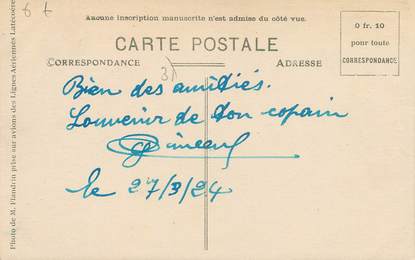 6 t
Aucune inscription manuscrite n'est admise du côté vue.
CARTE POSTALE
CORRESPONDANCE
ADRESSE
0 fr. 10
pour toute
CORRESPONDANCE
Bien des amitiés.
Souvenir de ton copain
le 27/3/24
Photo de M. Flandrin prise sur avions des Lignes Aériennes Latécoère